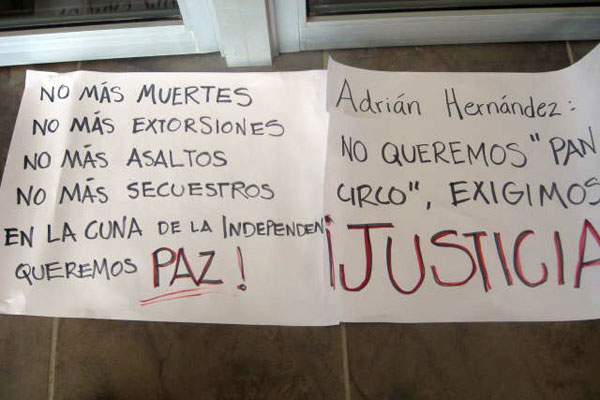 NO MÁS MUERTES
NO MÁS EXTORSIONES
NO MÁS ASALTOS
NO MÁS SECUESTROS
EN LA CUNA DE LA INDEPENDEN
QUEREMOS PAZ!
Adrián Hernández:
NO QUEREMOS "PAN
CIRCO", EXIGIMOS
¡JUSTICIA